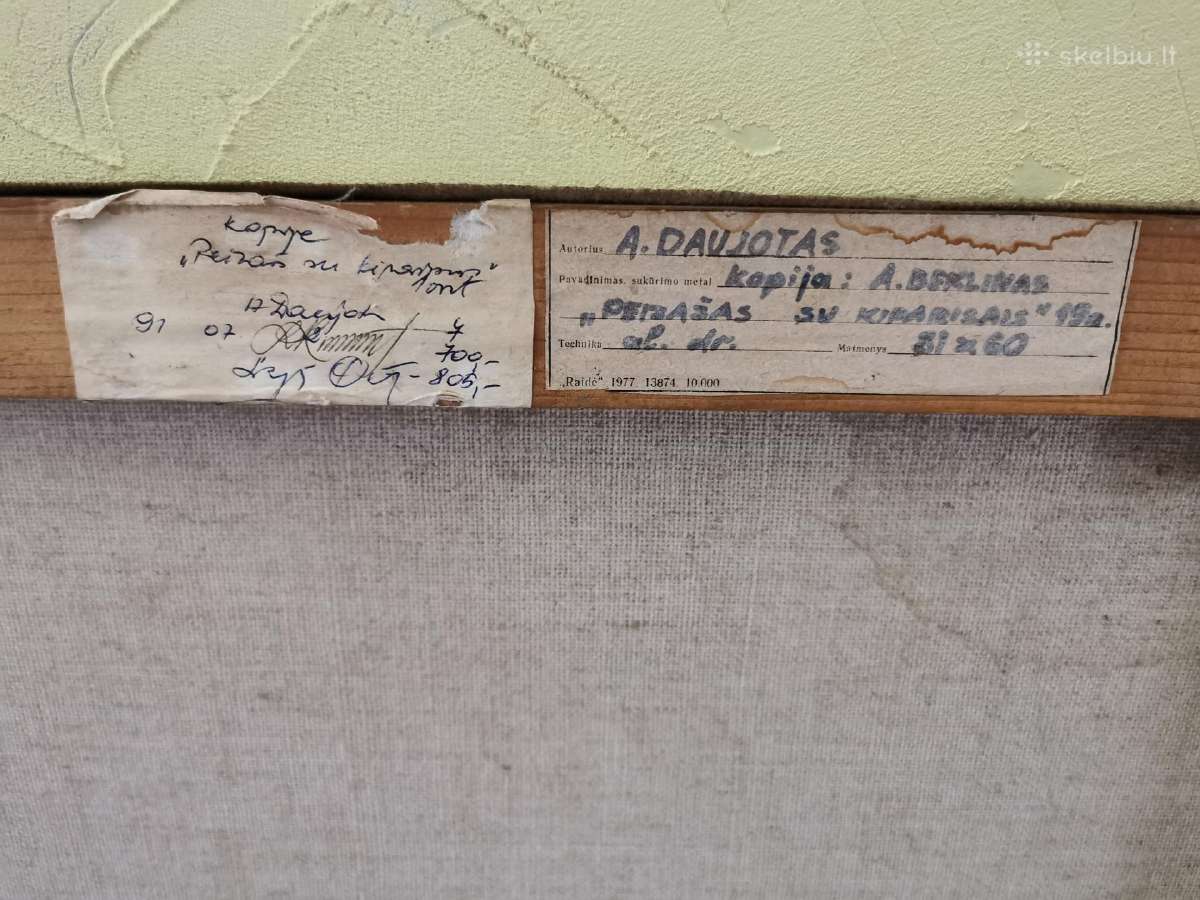 skelbiu.lt
Kopije
"Peizaž su kiparisais"
A Daujot
91 07 7
700,-
805,-
Autorius A. DAUJOTAS
Pavadinimas, sukūrimo metai Kopija: A. BERLINAS
"PEIZAŽAS SU KIPARISAIS" 19a.
Technika al. dr. Matmenys 81 x 60
„Raidė“ 1977. 13874. 10.000